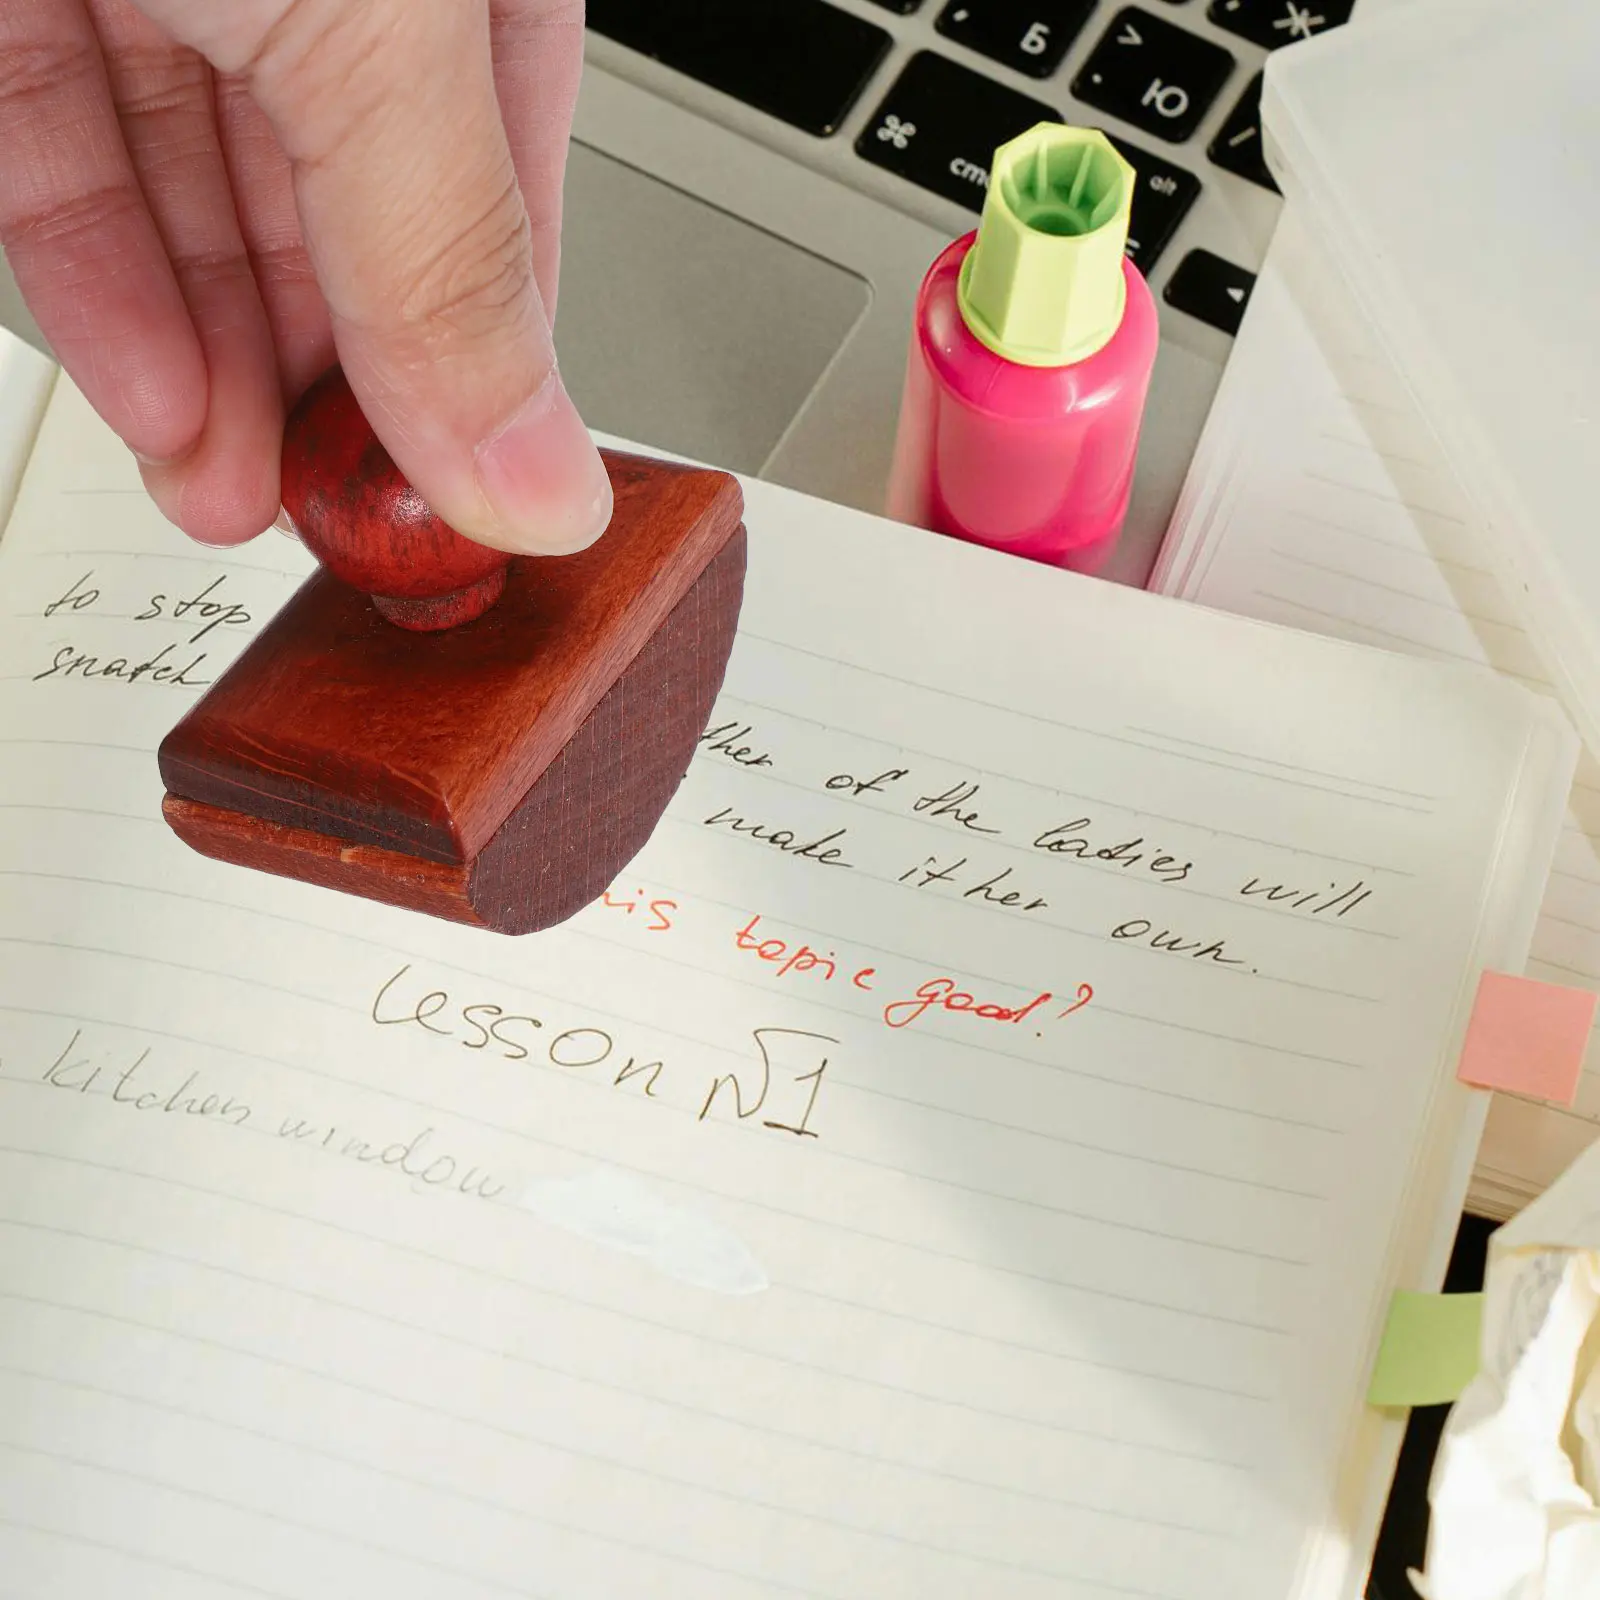 Б
>
.
Ю
Ж
⌘
cmd
alt
/
to stop
snatch
ther of the ladies will
make it her own.
his topic good?
Lesson №1
kitchen window